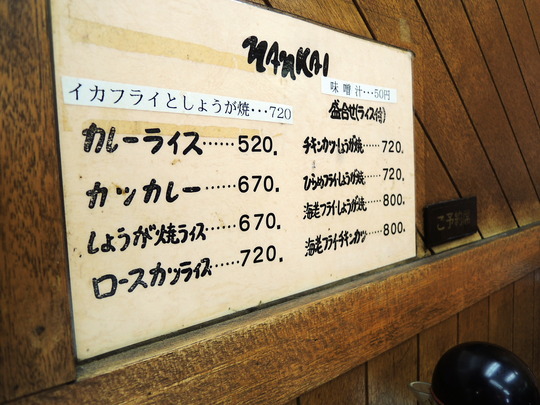 NANKAI
イカフライとしょうが焼・・・720
カレーライス……520.
カツカレー……670.
しょうが焼ライス……670.
ロースカツライス……720.
味噌汁・・・50円
盛合せ(ライス付)
チキンカツしょうが焼……720.
ひらめフライしょうが焼……720.
海老フライしょうが焼……800.
海老フライチキンカツ……800.
ご予約席